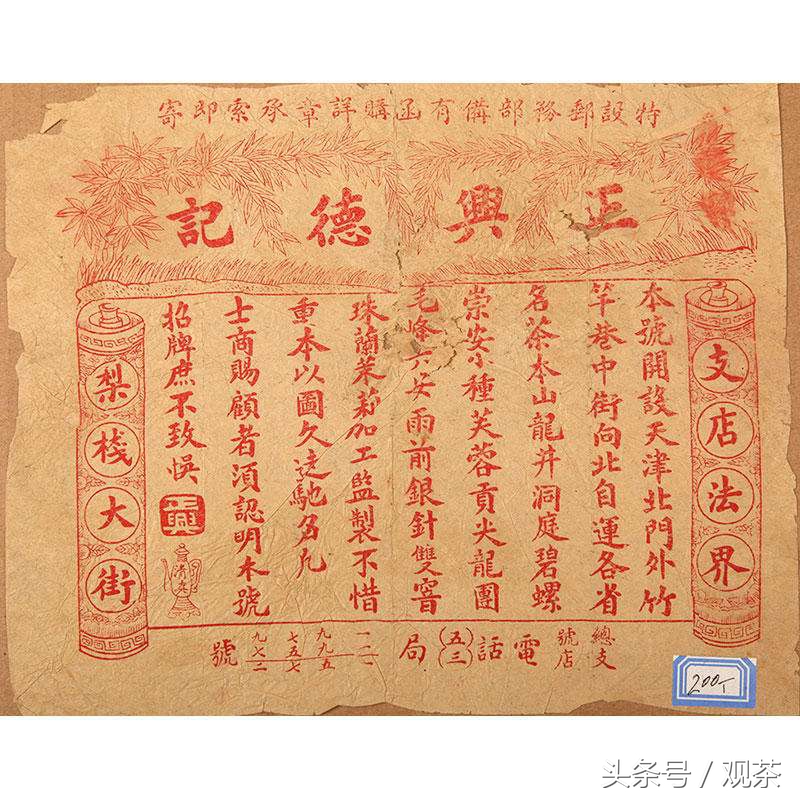 特設郵務部備有函購詳章承索即寄
正興德記
支店法界
本號開設天津北門外竹
竿巷中街向北自運各省
名茶本山龍井洞庭碧螺
崇安小種芙蓉貢尖龍團
毛峰六安雨前銀針雙窨
珠蘭茉莉加工監製不惜
重本以圖久遠馳名凡
士商賜顧者須認明本號
招牌庶不致悞
清真
梨棧大街
總號
支店
電話
(五)
(三)
局
號
200
头条号 / 观茶